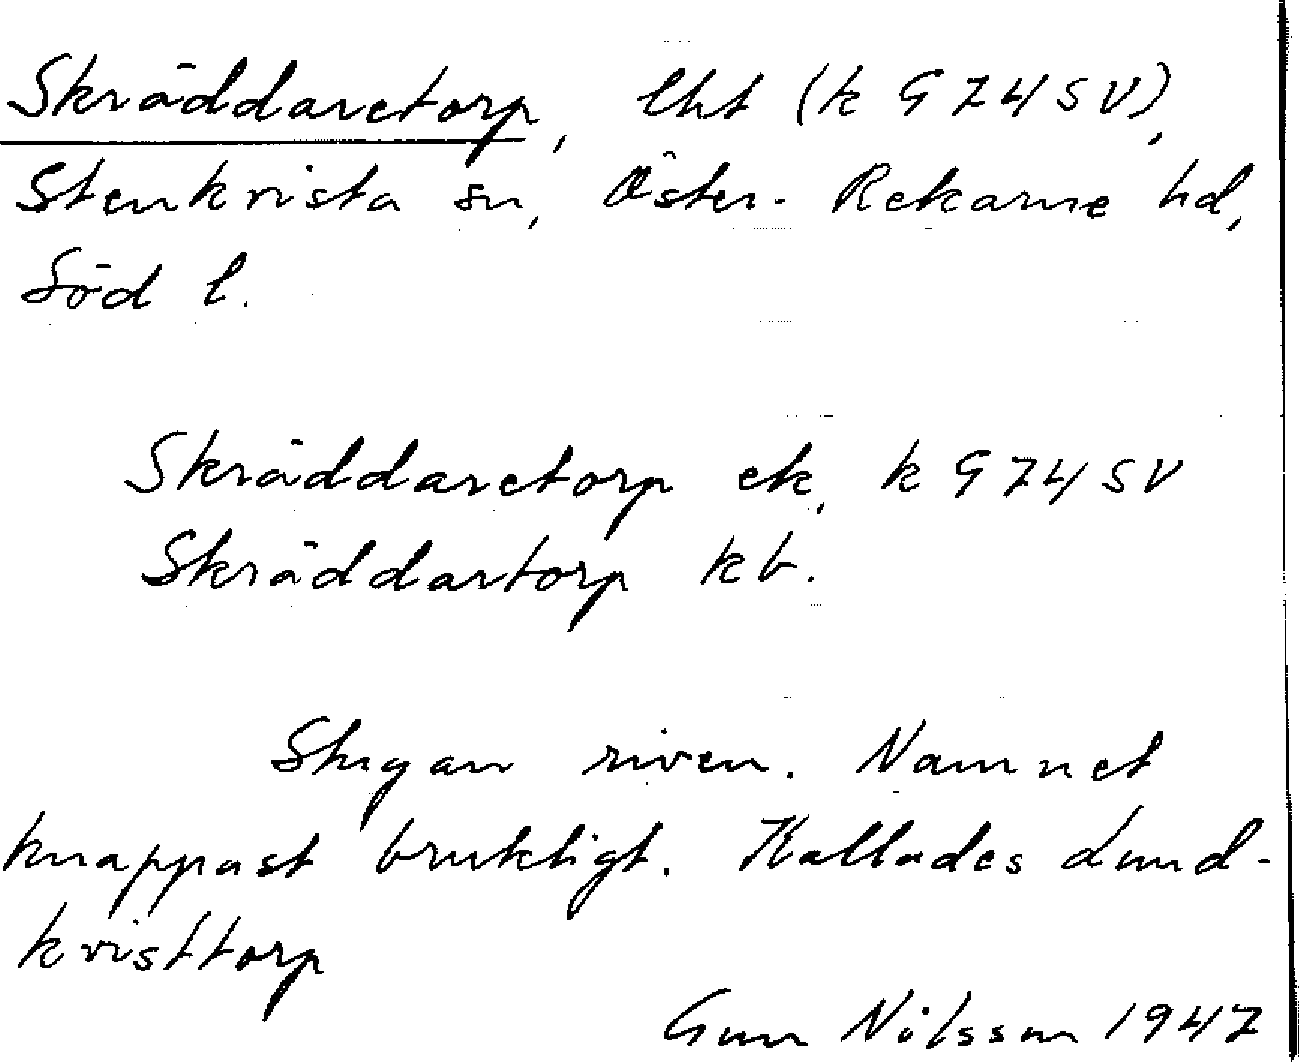 Skräddaretorp, lht (k G74SV),
Stenkvista sn, Öster-Rekarne hd,
Söd l.
Skräddaretorp ek, k G74SV
Skräddartorp kb.
Stugan riven. Namnet
knappast brukligt. Kallades Lund-
kvisttorp
Gun Nilsson 1947